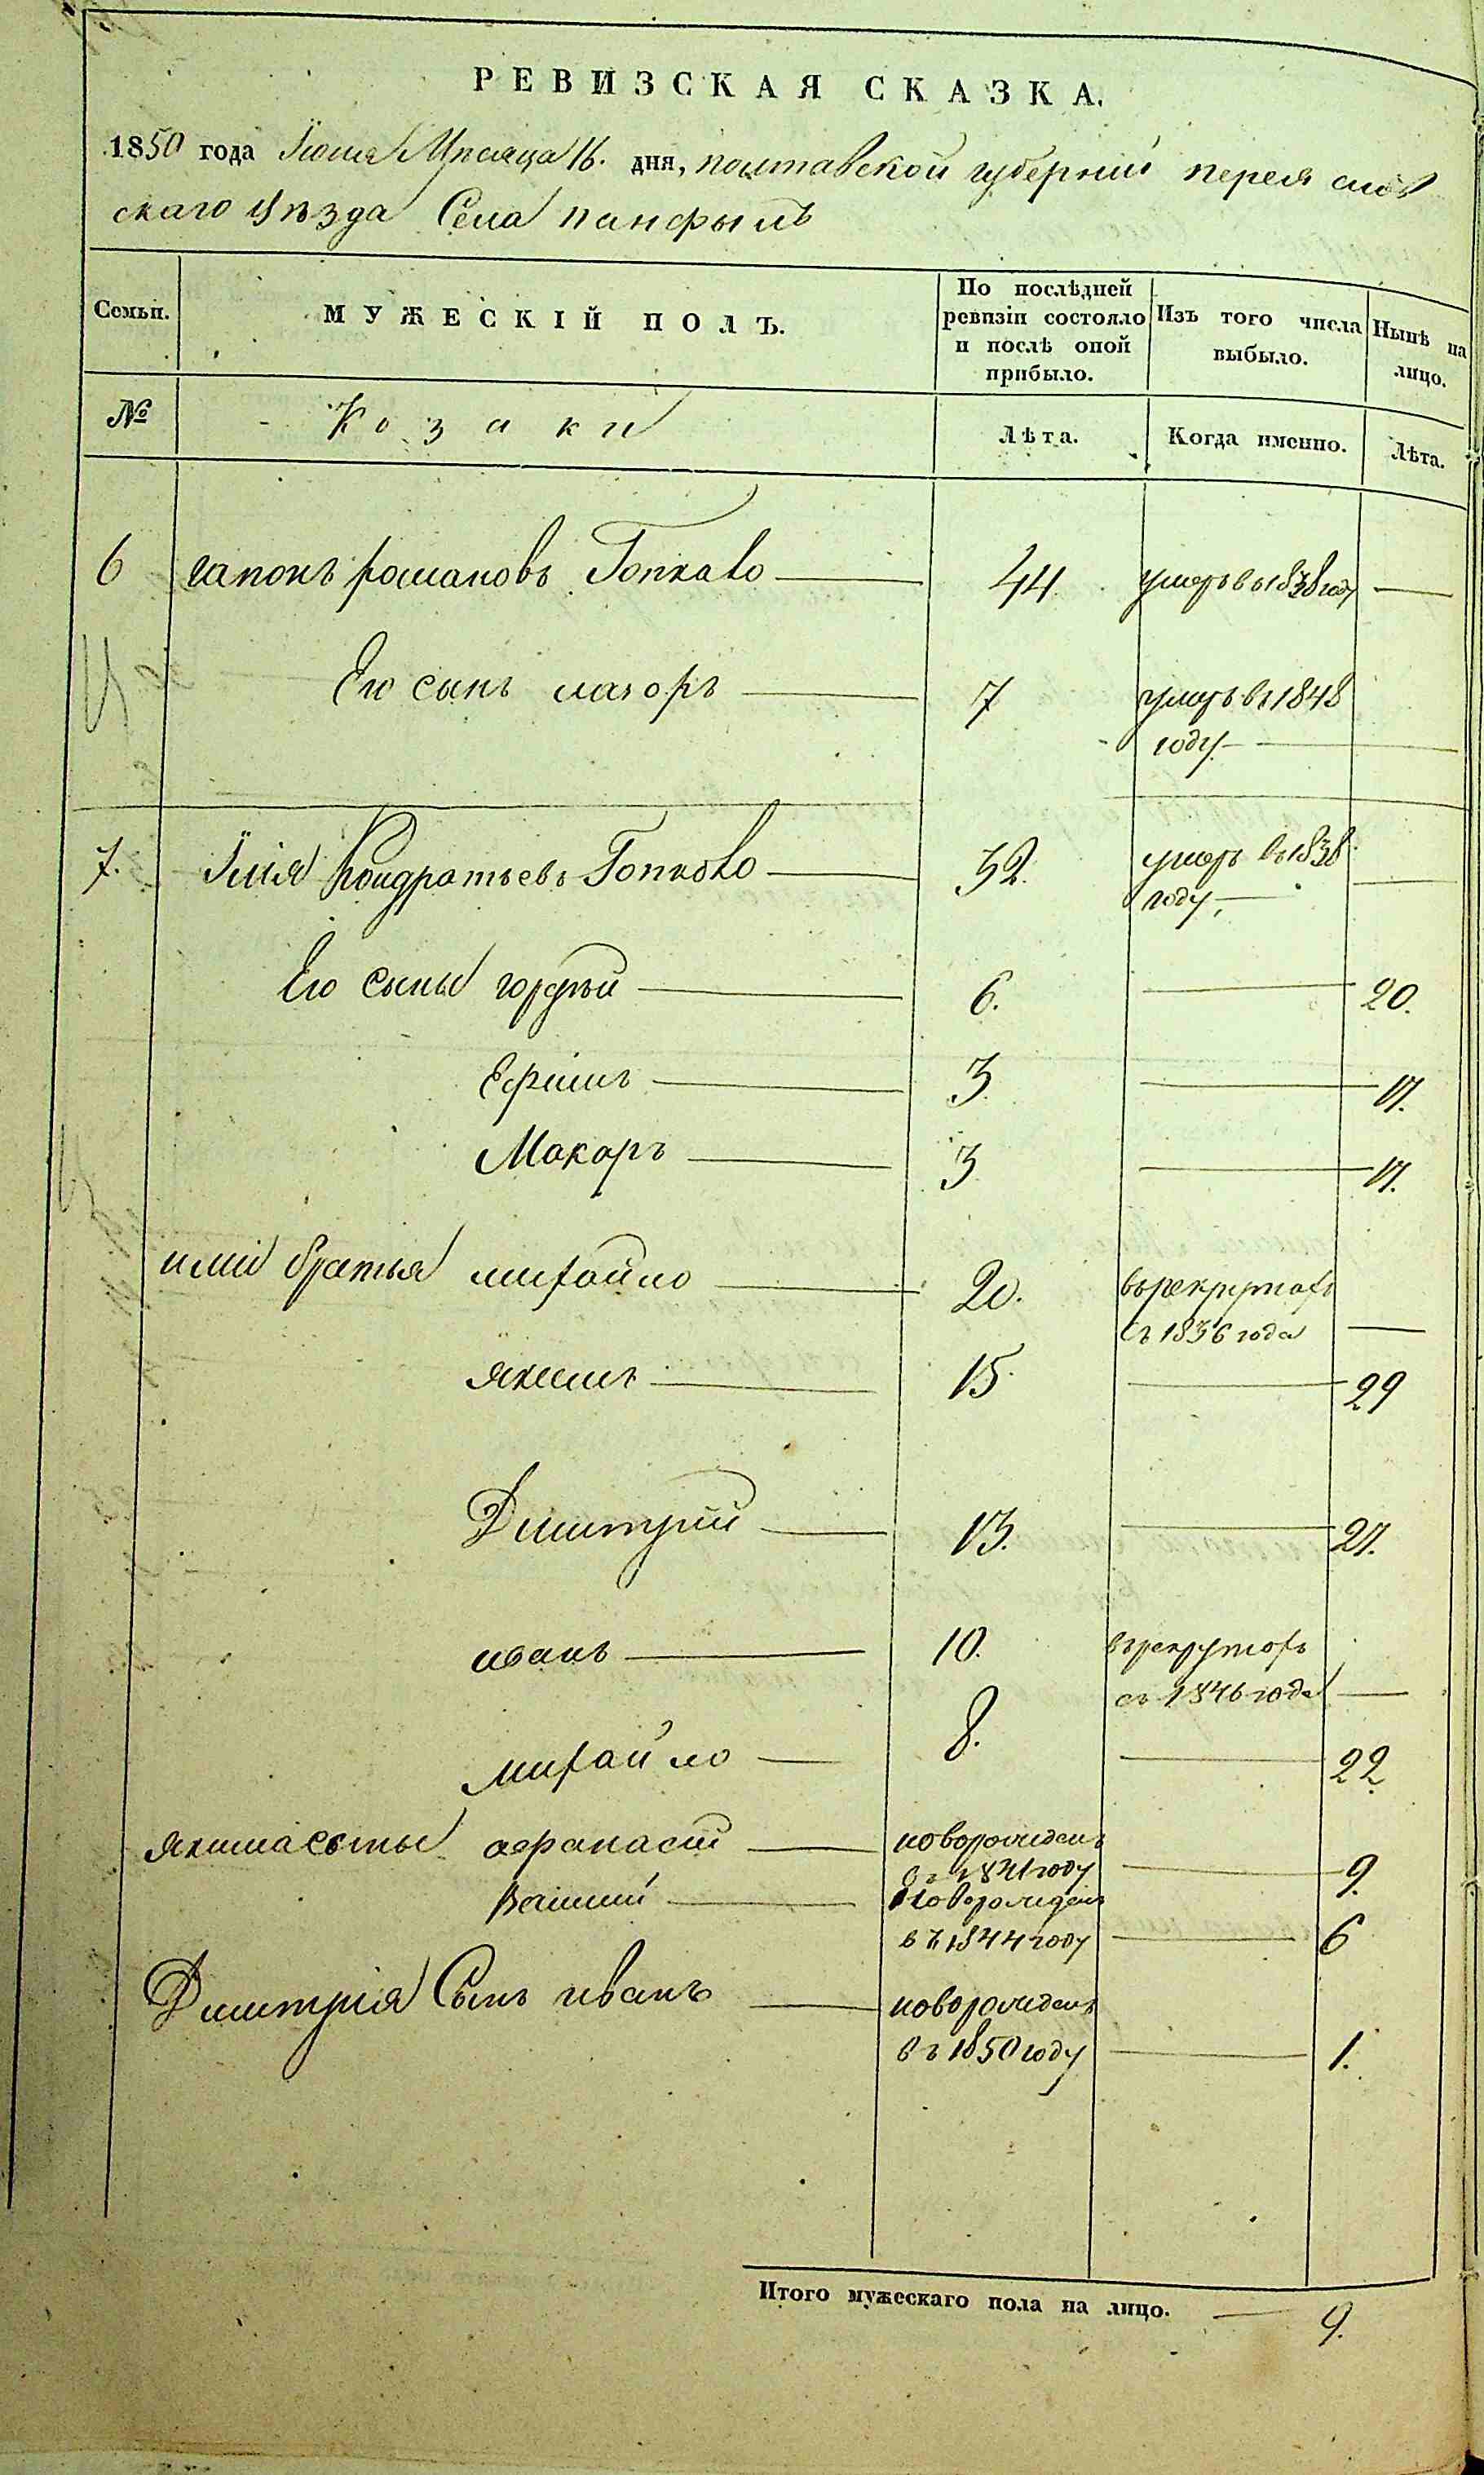 РЕВИЗСКАЯ СКАЗКА.
1850 года Іюня Мѣсяца 16. дня, полтавской губерніи переяслов
скаго уѣзда Села панфылъ
Семьи. МУЖЕСКІЙ ПОЛЪ. По послѣдней ревизіи состояло и послѣ оной прибыло. Изъ того числа выбыло. Нынѣ на лицо.
№ Козаки Лѣта. Когда именно. Лѣта.
6 гапонъ романовъ Гопкало 44. умеръ въ 1838 году
Его сынъ лазоръ 7 умеръ въ 1848
году
7. Ілія Кондратьевъ Гопкало 32. умеръ въ 1838
году
Его сыны гордѣй 6. 20.
Ефимъ 3. 17.
Макаръ 3 17.
иліи братья михайло 20. въ рекрутахъ
съ 1836 года
якимъ 15. 29
Дмитрій 13. 27.
иванъ 10. въ рекрутахъ
съ 1846 года
михайло 8. 22
якима сыны афанасій новорожденъ
въ 1841 году 9.
новорожденъ
въ 1844 году 6
Дмитрія Сынъ иванъ новорожденъ
въ 1850 году 1.
Итого мужескаго пола на лицо. 9.